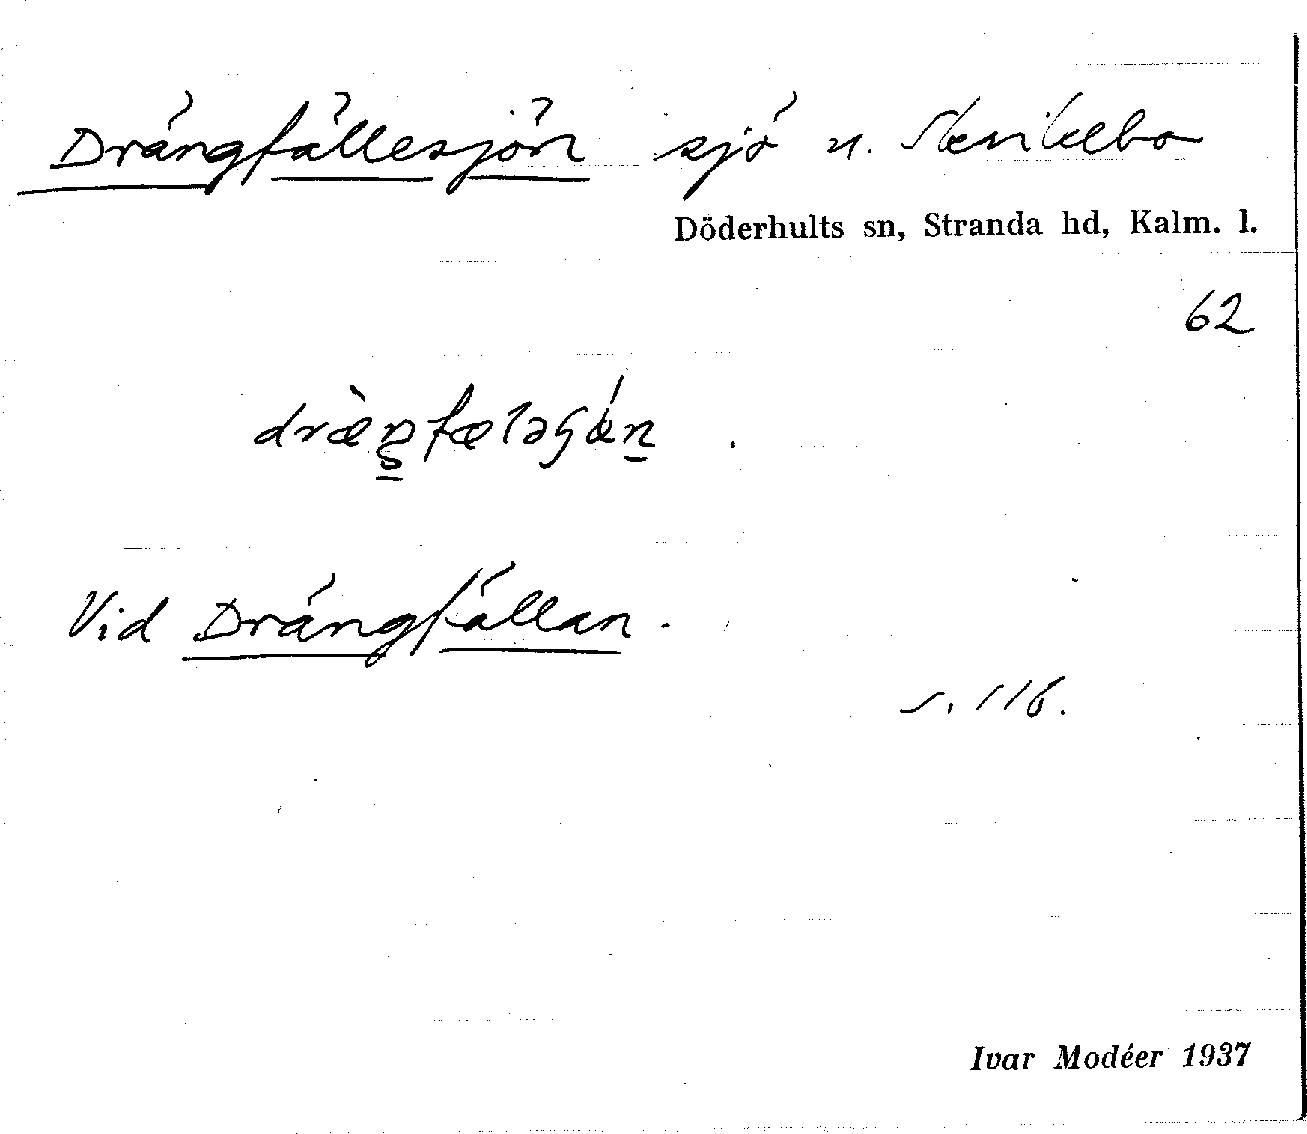 Drängfällesjön sjö n. Skrikebo
Döderhults sn, Stranda hd, Kalm. l.
62
Vid Drängfällan.
s. 116.
Ivar Modéer 1937